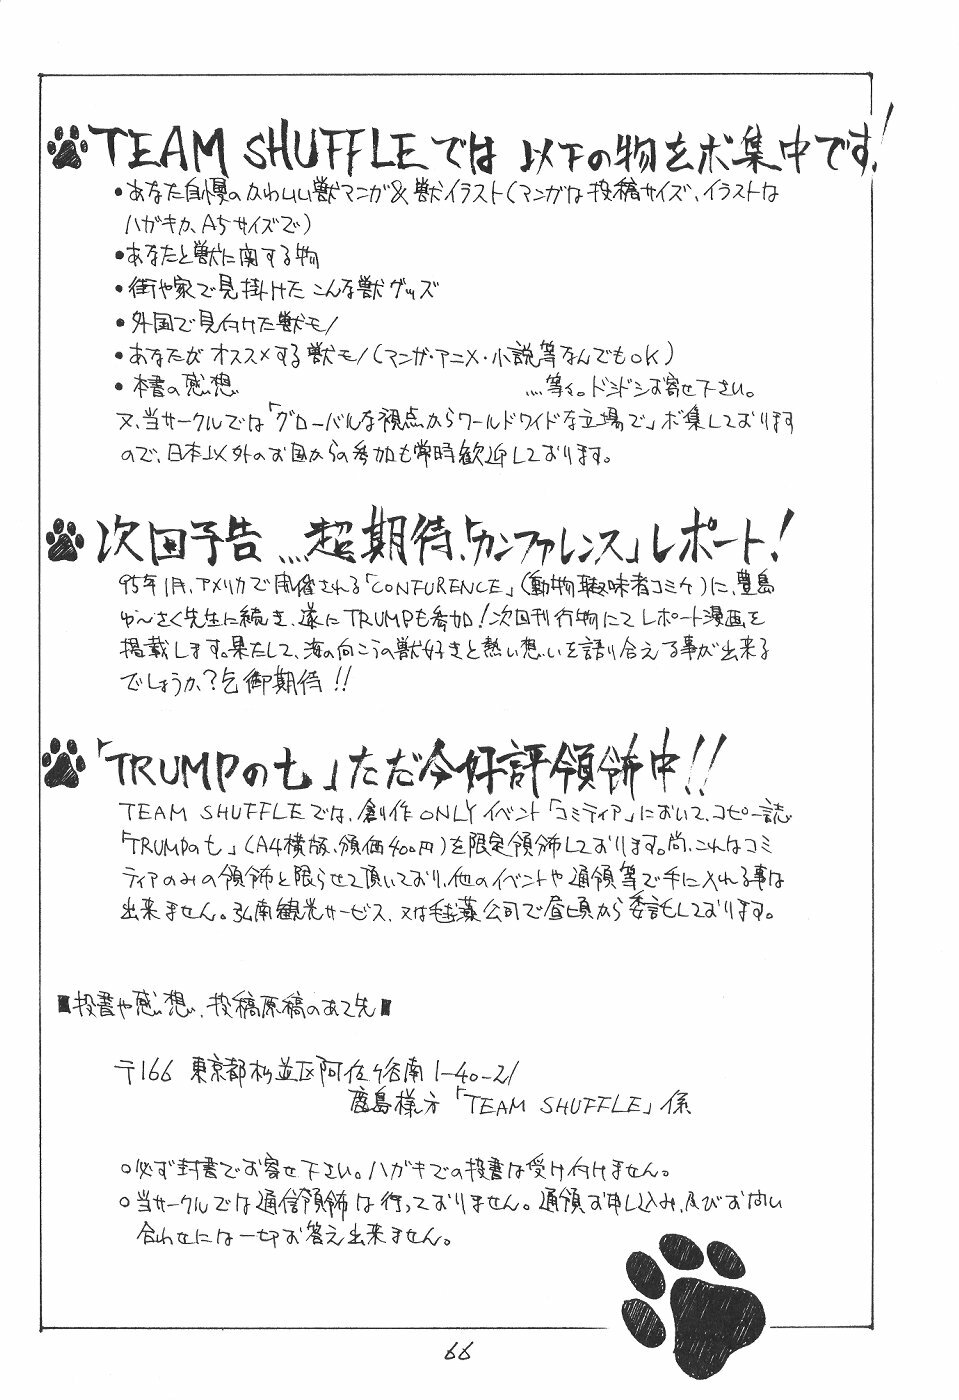 TEAM SHUFFLEでは以下の物をボ集中です!
・あなた自慢のかわいい獣マンガ&獣イラスト(マンガは投稿サイズ、イラストは
ハガキか、A5サイズで)
・あなたと獣に関する物
・街や家で見掛けたこんな獣グッズ
・外国で見付けた獣モノ
・あなたがオススメする獣モノ(マンガ・アニメ・小説等なんでもOK)
・本書の感想 …等々。ドンドンお寄せ下さい。
又、当サークルでは「グローバルな視点からワールドワイドな立場で」ボ集しております
ので、日本以外のお国からの参加も常時歓迎しております。
次回予告…超期待、「カンファレンス」レポート!
95年1月、アメリカで開催される「CONFURENCE」(動物趣味者コミケ)に、豊島
ゆ〜さく先生に続き、遂にTRUMPも参加!次回刊行物にてレポート漫画を
掲載します。果たして、海の向こうの獣好きと熱い想いを語り合える事が出来る
でしょうか?乞御期待!!
「TRUMPの七」ただ今好評領布中!!
TEAM SHUFFLEでは、創作ONLYイベント「コミティア」において、コピー誌
「TRUMPの七」(A4横版、頒価400円)を限定領布しております。尚、これはコミ
ティアのみの領布と限らせて頂いており、他のイベントや通領等で手に入れる事は
出来ません。弘南観光サービス、又は毛藻公司で昼頃から委託しております。
■投書や感想、投稿原稿のあて先■
〒166 東京都杉並区阿佐ヶ谷南1-40-21
鹿島様方「TEAM SHUFFLE」係
○必ず封書でお寄せ下さい。ハガキでの投書は受け付けません。
○当サークルでは通信領布は行っておりません。通領お申し込み、及びお問い
合わせには一切お答え出来ません。
66